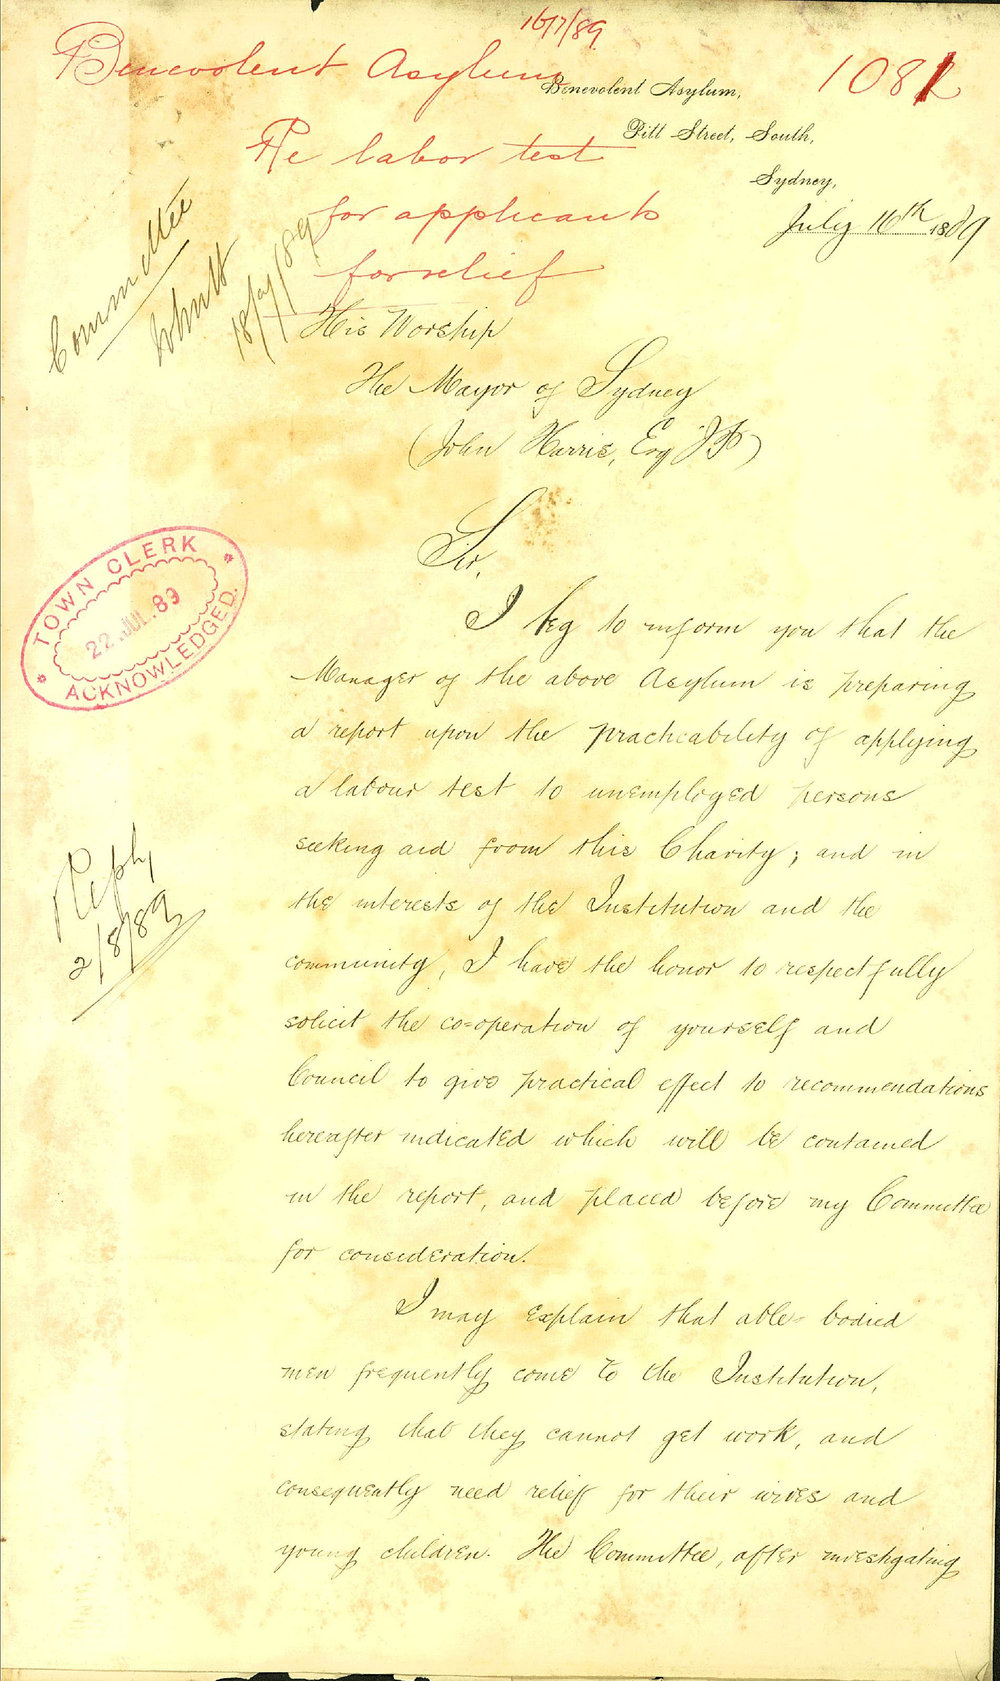 16/7/89
Benevolent Asylum
108
Benevolent Asylum,
Pitt Street, South,
Sydney,
July 16th 1889
Re labor test
for applicants
for relief
Committee
18/7/89
His Worship
The Mayor of Sydney
(John Harris, Esq JP)
TOWN CLERK
22 JUL. 89
ACKNOWLEDGED.
Sir,
I beg to inform you that the
Manager of the above Asylum is preparing
a report upon the practicability of applying
a labour test to unemployed persons
seeking aid from this Charity; and in
the interests of the Institution and the
community, I have the honor to respectfully
solicit the co=operation of yourself and
Council to give practical effect to recommendations
hereafter indicated which will be contained
in the report, and placed before my Committee
for consideration.
Reply
2/8/89
I may explain that able=bodied
men frequently come to the Institution,
stating that they cannot get work, and
consequently need relief for their wives and
young children. The Committee, after investigating